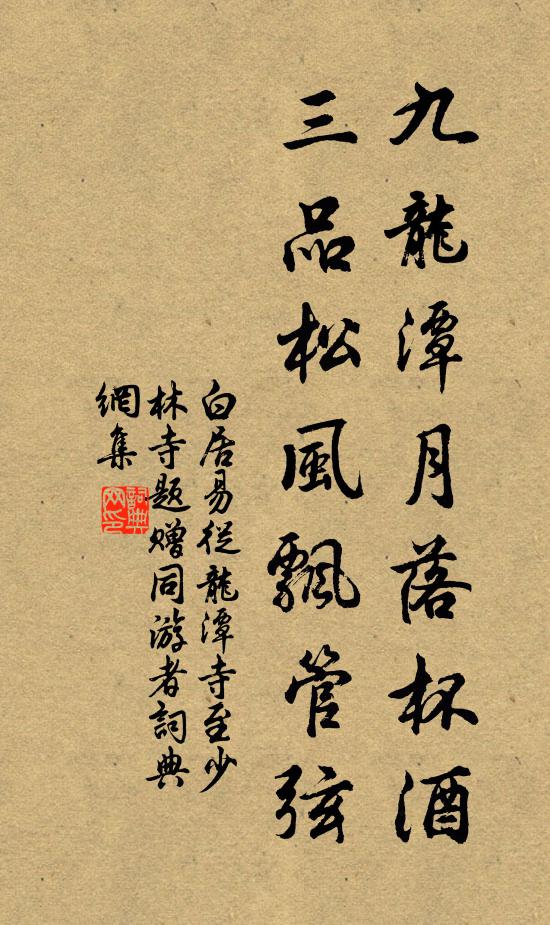 九龍潭月落杯酒
三品松風飄管弦
白居易從龍潭寺至少
林寺題贈同游者詞典
網集
詞典
网印